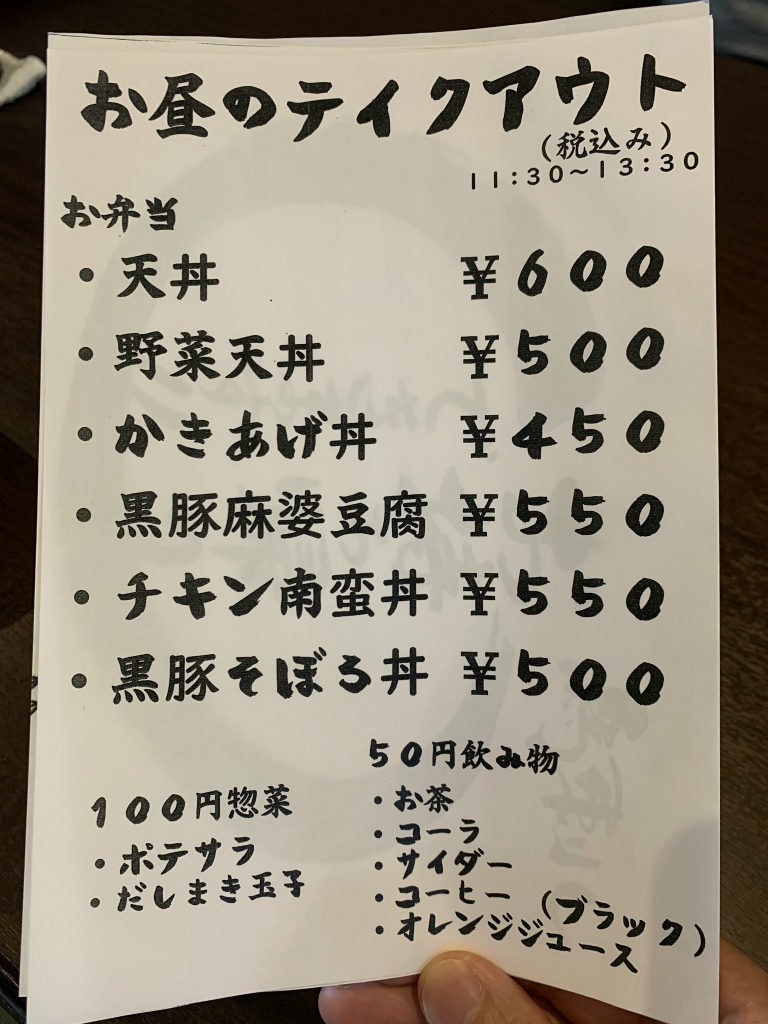 お昼のテイクアウト
(税込み)
11:30~13:30
お弁当
・天丼 ¥600
・野菜天丼 ¥500
・かきあげ丼 ¥450
・黒豚麻婆豆腐 ¥550
・チキン南蛮丼 ¥550
・黒豚そぼろ丼 ¥500
100円惣菜
・ポテサラ
・だしまき玉子
50円飲み物
・お茶
・コーラ
・サイダー
・コーヒー(ブラック)
・オレンジジュース